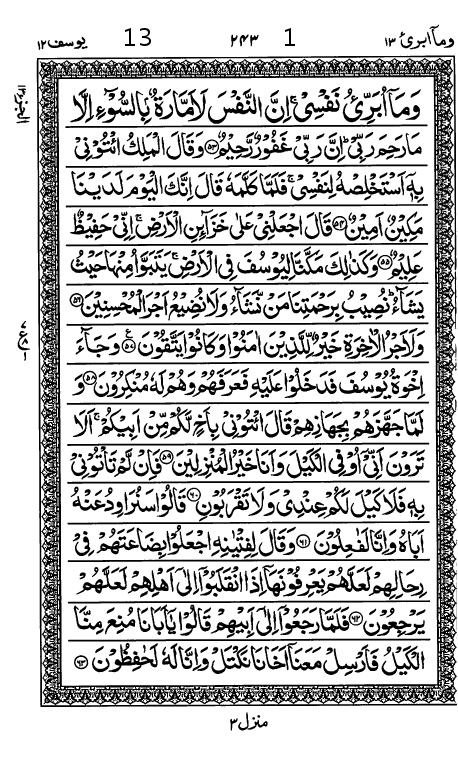 ومآ ابرئ ۱۳ 1 ۲۴۳ 13 يوسف ۱۲
الجزء ۱۳
وَمَآ اُبَرِّئُ نَفْسِيْ ۚ اِنَّ النَّفْسَ لَاَمَّارَةٌۢ بِالسُّوْٓءِ اِلَّا
مَا رَحِمَ رَبِّيْ ۭ اِنَّ رَبِّيْ غَفُوْرٌ رَّحِيْمٌ ۝۵۳ وَقَالَ الْمَلِكُ ائْتُوْنِيْ
بِهٖٓ اَسْتَخْلِصْهُ لِنَفْسِيْ ۚ فَلَمَّا كَلَّمَهٗ قَالَ اِنَّكَ الْيَوْمَ لَدَيْنَا
مَكِيْنٌ اَمِيْنٌ ۝۵۴ قَالَ اجْعَلْنِيْ عَلٰى خَزَآئِنِ الْاَرْضِ ۚ اِنِّيْ حَفِيْظٌ
عَلِيْمٌ ۝۵۵ وَكَذٰلِكَ مَكَّنَّا لِيُوْسُفَ فِي الْاَرْضِ ۚ يَتَبَوَّاُ مِنْهَا حَيْثُ
يَشَآءُ ۭ نُصِيْبُ بِرَحْمَتِنَا مَنْ نَّشَآءُ وَلَا نُضِيْعُ اَجْرَ الْمُحْسِنِيْنَ ۝۵۶
وَلَاَجْرُ الْاٰخِرَةِ خَيْرٌ لِّلَّذِيْنَ اٰمَنُوْا وَكَانُوْا يَتَّقُوْنَ ۝۵۷ ع وَجَآءَ
اِخْوَةُ يُوْسُفَ فَدَخَلُوْا عَلَيْهِ فَعَرَفَهُمْ وَهُمْ لَهٗ مُنْكِرُوْنَ ۝۵۸ وَ
لَمَّا جَهَّزَهُمْ بِجَهَازِهِمْ قَالَ ائْتُوْنِيْ بِاَخٍ لَّكُمْ مِّنْ اَبِيْكُمْ ۚ اَلَا
تَرَوْنَ اَنِّيْٓ اُوْفِي الْكَيْلَ وَاَنَا خَيْرُ الْمُنْزِلِيْنَ ۝۵۹ فَاِنْ لَّمْ تَاْتُوْنِيْ
بِهٖ فَلَا كَيْلَ لَكُمْ عِنْدِيْ وَلَا تَقْرَبُوْنِ ۝۶۰ قَالُوْا سَنُرَاوِدُ عَنْهُ
اَبَاهُ وَاِنَّا لَفٰعِلُوْنَ ۝۶۱ وَقَالَ لِفِتْيٰنِهِ اجْعَلُوْا بِضَاعَتَهُمْ فِيْ
رِحَالِهِمْ لَعَلَّهُمْ يَعْرِفُوْنَهَآ اِذَا انْقَلَبُوْٓا اِلٰٓى اَهْلِهِمْ لَعَلَّهُمْ
يَرْجِعُوْنَ ۝۶۲ فَلَمَّا رَجَعُوْٓا اِلٰٓى اَبِيْهِمْ قَالُوْا يٰٓاَبَانَا مُنِعَ مِنَّا
الْكَيْلُ فَاَرْسِلْ مَعَنَآ اَخَانَا نَكْتَلْ وَاِنَّا لَهٗ لَحٰفِظُوْنَ ۝۶۳
منزل ۳